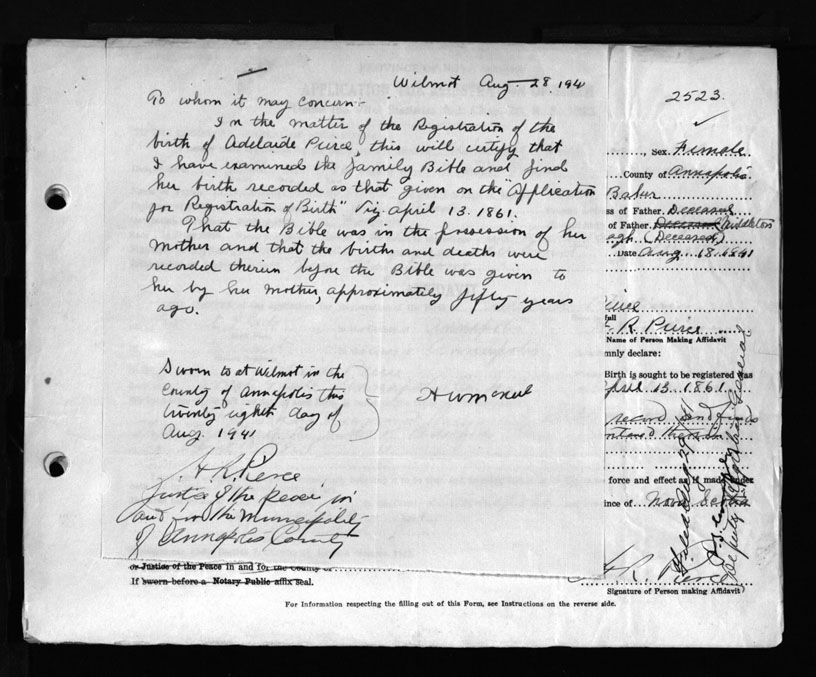 Wilmot Aug 28. 1941
To whom it may concern:-
In the matter of the Registration of the
birth of Adelaide Peirce, this will certify that
I have examined the family Bible and find
her birth recorded as that given on the "Application
for Registration of Birth" Viz April 13. 1861.
That the Bible was in the possession of her
mother and that the births and deaths were
recorded therein before the Bible was given to
her by her mother, approximately fifty years
ago.
Sworn to at Wilmot in the
County of Annapolis this
twenty eighth day of
Aug. 1941
H W
R. Pierce
Justice of the peace, in
and for the Municipality
of Annapolis County
or Justice of the Peace in and for the County of
If sworn before a Notary Public affix seal.
For Information respecting the filling out of this Form, see Instructions on the reverse side.
2523.
, Sex Female
County of Annapolis
Baker
ss of Father Deceased
of Father Deceased Middleton
(Deceased)
Date Aug 18
R. Peirce
Name of Person Making Affidavit
mnly declare:
Birth is sought to be registered was
April 13 1861
record and
force and effect as if made under
ince of Nova Scotia
R. Pierce
Signature of Person Making Affidavit
Filed Aug 29/41
Deputy Registrar General